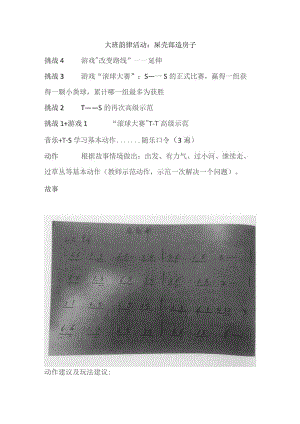 大班韵律活动：屎壳郎造房子
挑战4 游戏"改变路线"——延伸
挑战3 游戏“滚球大赛”：S—一S 的正式比赛，赢得一组获
得一颗小黄球，累计哪一组最多为获胜
挑战2 T——S 的再次高级示范
挑战1+游戏1 “滚球大赛"T-T 高级示范
音乐+T-S 学习基本动作.......随乐口令（3 遍）
动作 根据故事情境做出：出发、有力气、过小河、继续走、
过草丛等基本动作（教师示范动作，示范一次解决一个问题）。
故事
动作建议及玩法建议: